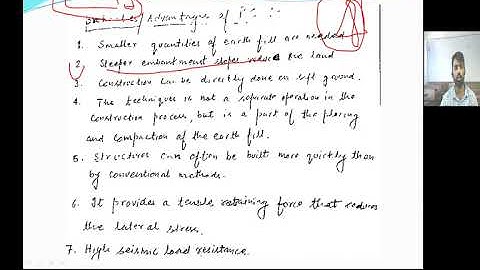 Advantages of
1. Smaller quantities of earth fill are needed
2. Steeper embankment slopes reduce the land
3. Construction can be directly done on soft ground.
4. The techniques is not a separate operation in the
construction process, but is a part of the placing
and compaction of the earth fill.
5. Structures can often be built more quickly than
by conventional methods.
6. It provides a tensile restraining force that reduces
the lateral stress.
7. High seismic load resistance.